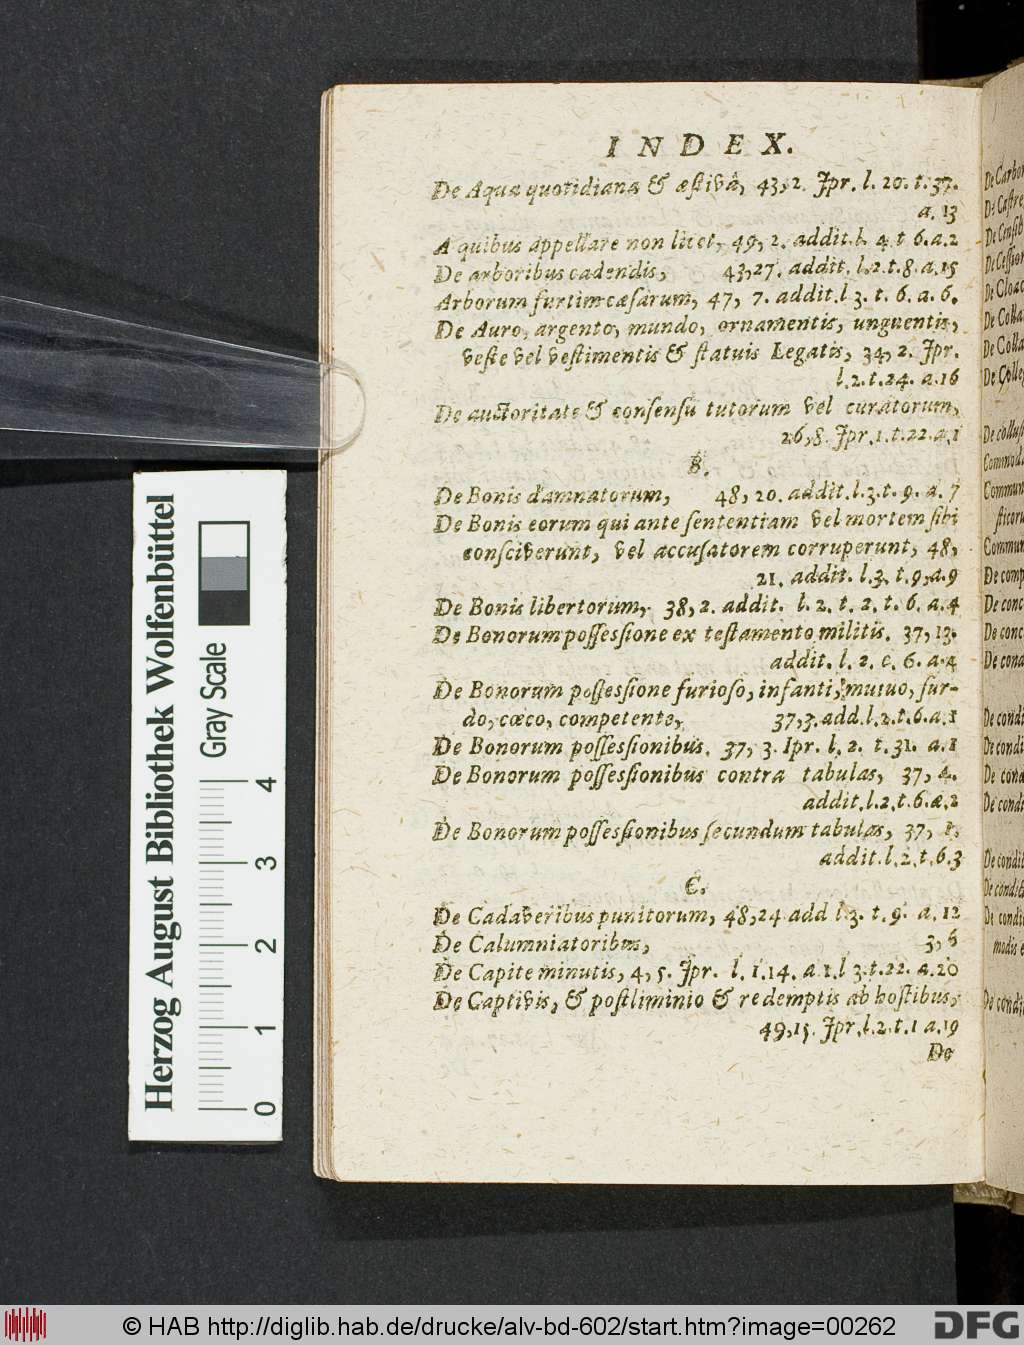 INDEX.
De Aqua quotidiana & æstiva, 43,2. Jpr. l. 20. t. 37.
a. 13
A quibus appellare non licet, 49, 2. addit. l. 4 t 6. a. 2
De arboribus cadendis, 43,27. addit. l. 2. t. 8. a. 15
Arborum furtim cæsarum, 47, 7. addit. l 3. t. 6. a. 6.
De Auro, argento, mundo, ornamentis, unguentis,
veste vel vestimentis & statuis Legatis, 34, 2. Jpr.
l. 2. t. 24. a. 16
De auctoritate & consensu tutorum vel curatorum,
26,8. Jpr. 1. t. 22. a. 1
B.
De Bonis damnatorum, 48, 20. addit. l. 3. t. 9. a. 7
De Bonis eorum qui ante sententiam vel mortem sibi
consciverunt, vel accusatorem corruperunt, 48,
21. addit. l. 3. t. 9, a. 9
De Bonis libertorum, 38, 2. addit. l. 2. t. 2. t. 6. a. 4
De Bonorum possessione ex testamento militis. 37, 13.
addit. l. 2. c. 6. a. 4
De Bonorum possessione furioso, infanti, mutuo, sur-
do, cæco, competente, 37,3. add. l. 2. t. 6. a. 1
De Bonorum possessionibus. 37, 3. Ipr. l. 2. t. 31. a. 1
De Bonorum possessionibus contra tabulas, 37, 4.
addit. l. 2. t. 6. a. 2
De Bonorum possessionibus secundum tabulas, 37, 1.
addit. l. 2. t. 6. 3
C.
De Cadaveribus punitorum, 48, 24 add l 3. t. 9. a. 12
De Calumniatoribus, 3, 6
De Capite minutis, 4, 5. Jpr. l. 1. 14. a 1. l 3. t. 22. a. 20
De Captivis, & postliminio & redemptis ab hostibus,
49, 15. Jpr. l. 2. t. 1 a. 19
De
Herzog August Bibliothek Wolfenbüttel
Gray Scale
0 1 2 3 4
© HAB http://diglib.hab.de/drucke/alv-bd-602/start.htm?image=00262
DFG